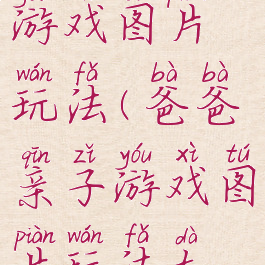 游戏图片
wán fǎ bà bà
玩法(爸爸
qīn zǐ yóu xì tú
亲子游戏图
piàn wán fǎ dà
片玩法大